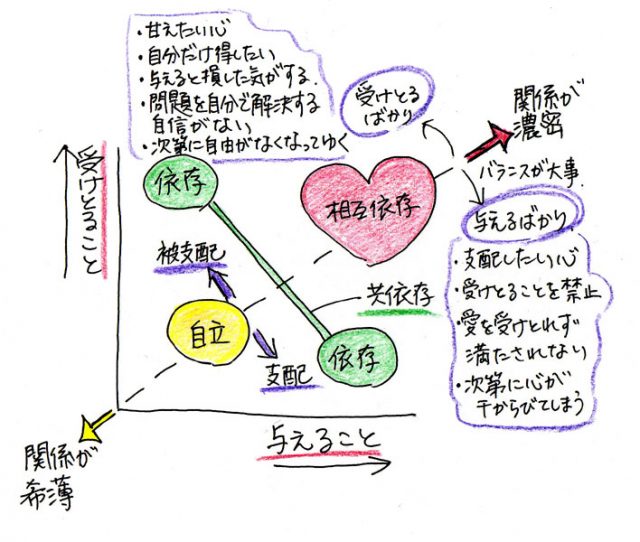 ・甘えたい心
・自分だけ得したい
・与えると損した気がする
・問題を自分で解決する
自信がない
・次第に自由がなくなってゆく
受けとる
ばかり
関係が
濃密
バランスが大事
受けとること
依存
相互依存
与えるばかり
・支配したい心
・受けとることを禁止
・愛を受けとれず
満たされない
・次第に心が
干からびてしまう
被支配
共依存
自立
支配
依存
与えること
関係が
希薄